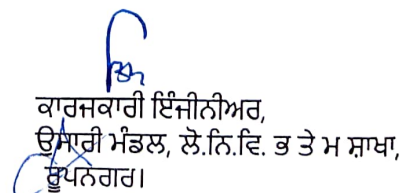 ਕਾਰਜਕਾਰੀ ਇੰਜੀਨੀਅਰ,
ਉਸਾਰੀ ਮੰਡਲ, ਲੋ.ਨਿ.ਵਿ. ਭ ਤੇ ਮ ਸ਼ਾਖਾ,
ਰੂਪਨਗਰ।